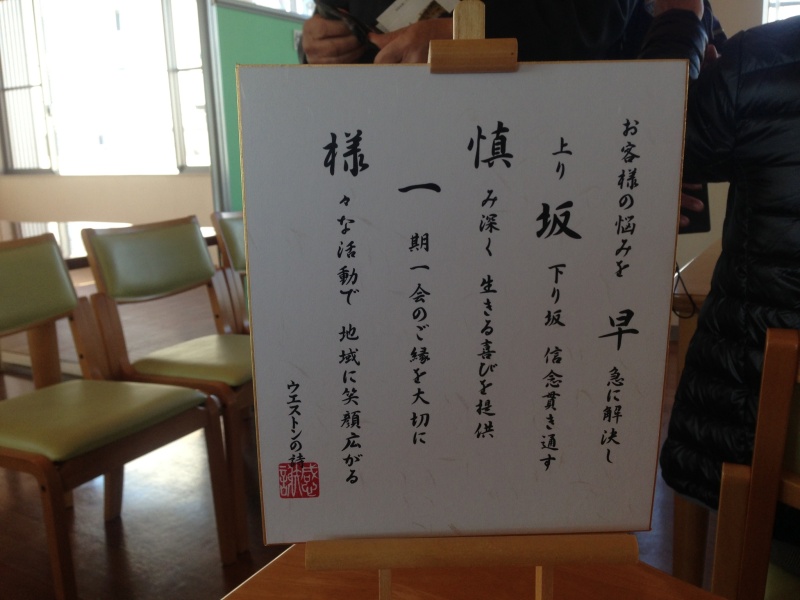 お客様の悩みを 早 急に解決し
上り 坂 下り坂 信念貫き通す
慎 み深く 生きる喜びを提供
一 期一会のご縁を大切に
様 々な活動で 地域に笑顔広がる
ウエストンの
感謝